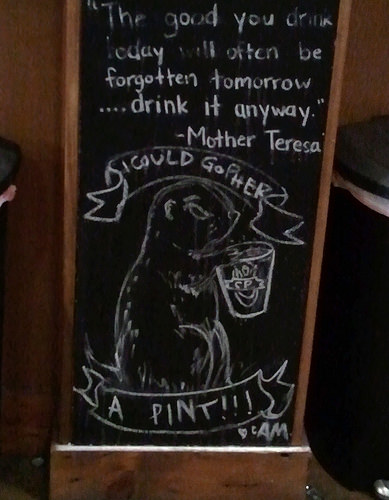 "The good you drink
today will often be
forgotten tomorrow
....drink it anyway."
-Mother Teresa
I COULD GOPHER
CP
A PINT!!!
♡cAM